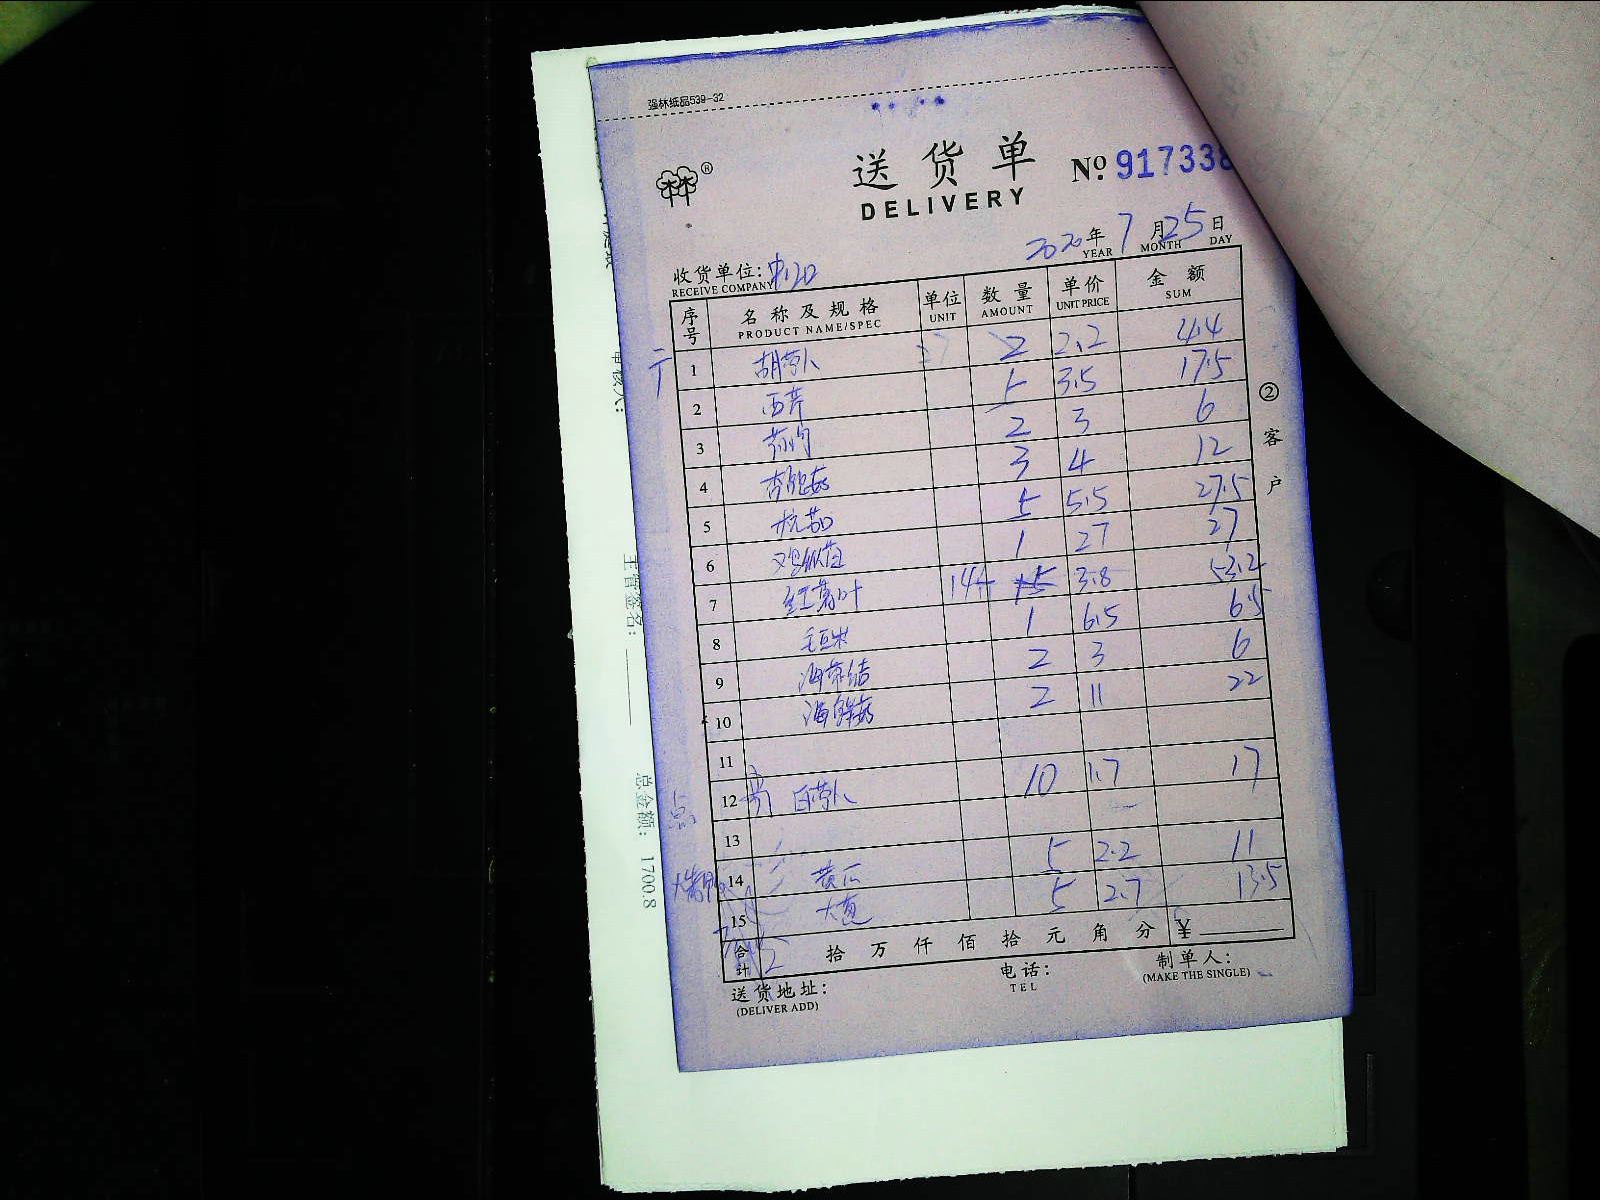 强林纸品539-32
送货单 №917338
DELIVERY
2020年7月25日
YEAR MONTH DAY
收货单位:
RECEIVE COMPANY
序号 名称及规格 单位 数量 单价 金额
PRODUCT NAME/SPEC UNIT AMOUNT UNIT PRICE SUM
1 胡萝卜 2 2.2 4.4
2 西芹 5 3.5 17.5
3 2 3 6
4 杏鲍菇 3 4 12
5 杭茄 5 5.5 27.5
6 鸡纵菇 1 27 27
7 红薯叶 14斤 3.8 53.2
8 毛豆米 1 6.5 6.5
9 海带结 2 3 6
10 海鲜菇 2 11 22
11
12 白萝卜 10 1.7 17
13
14 黄瓜 5 2.2 11
15 大葱 5 2.7 13.5
合计 拾 万 仟 佰 拾 元 角 分 ¥
送货地址: 电话: 制单人:
(DELIVER ADD) TEL (MAKE THE SINGLE)
②客户
主管签名:
总金额: 1700.8